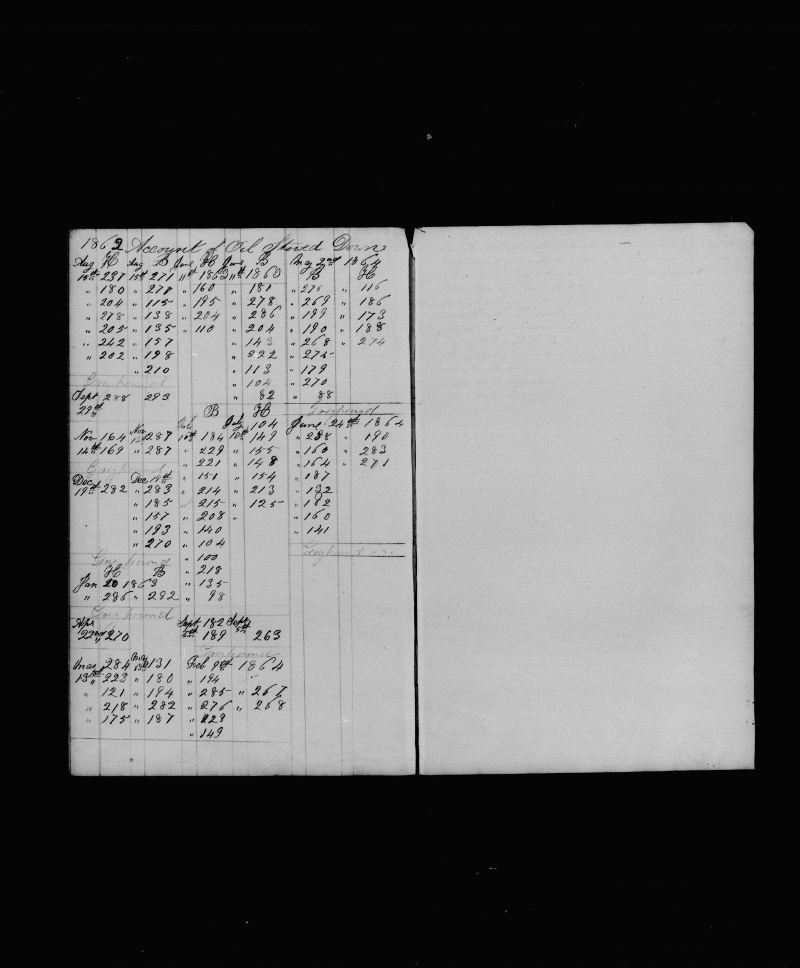 1862 Account of Oil Stowed Down
Aug H Aug B June H June B May 2nd 1864
15th 237 15th 271 11th 1863 11th 1863 B H
" 180 " 271 " 160 " 181 " 275 " 116
" 204 " 115 " 195 " 278 " 269 " 186
" 278 " 138 " 204 " 286 " 199 " 173
" 205 " 135 " 110 " 204 " 190 " 188
" 242 " 157 " 143 " 268 " 274
" 202 " 198 " 222 " 275
" 210 " 113 " 179
Greyhound " 104 " 270
Sept 288 293 " 82 " 88
29th
B H Greyhound
July July 104 June 24th 1864
Nov 164 Nov 14 287 10th 184 10th 149 " 288 " 190
14th 169 " 287 " 229 " 155 " 160 " 283
" 221 " 148 " 164 " 271
Greyhound " 151 " 154 " 187
Dec Dec 19th
19th 282 " 283 " 214 " 213 " 132
" 185 " 215 " 125 " 182
" 157 " 208 " " 160
" 193 " 140 " 141
" 270 " 104
" 100 Greyhound
Greyhound " 218
H B
Jan 20 1863 " 135
" 286 " 292 " 98
Greyhound
Apr Sept 182 Sept
22nd 270 5th 189 5th 263
Greyhound
May 284 May 13th 131 Feb 9th 1864
13th 223 " 180 " 194
" 121 " 194 " 285 " 267
" 218 " 282 " 276 " 268
" 175 " 187 " 223
" 149